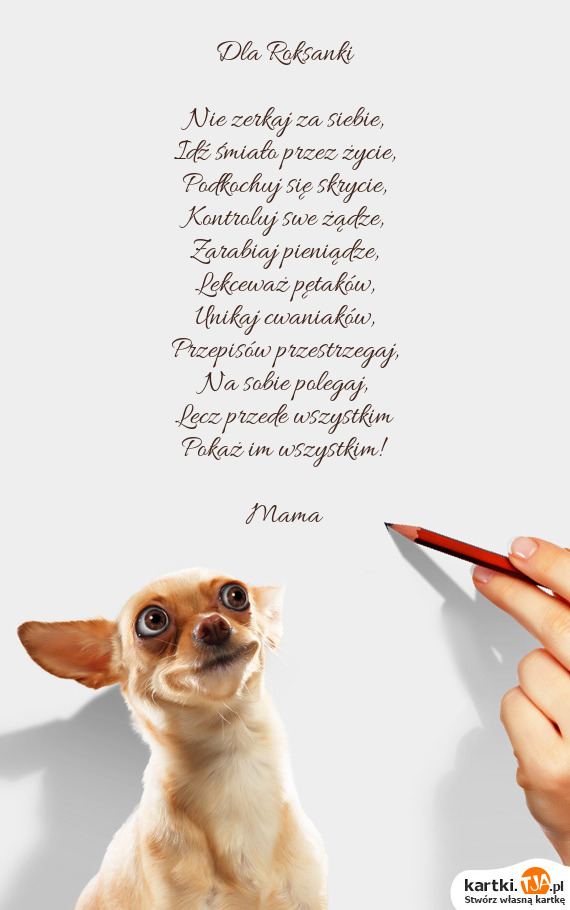 Dla Roksanki
Nie zerkaj za siebie,
Idź śmiało przez życie,
Podkochuj się skrycie,
Kontroluj swe żądze,
Zarabiaj pieniądze,
Lekceważ pętaków,
Unikaj cwaniaków,
Przepisów przestrzegaj,
Na sobie polegaj,
Lecz przede wszystkim
Pokaż im wszystkim!
Mama
kartki.TJA.pl
Stwórz własną kartkę